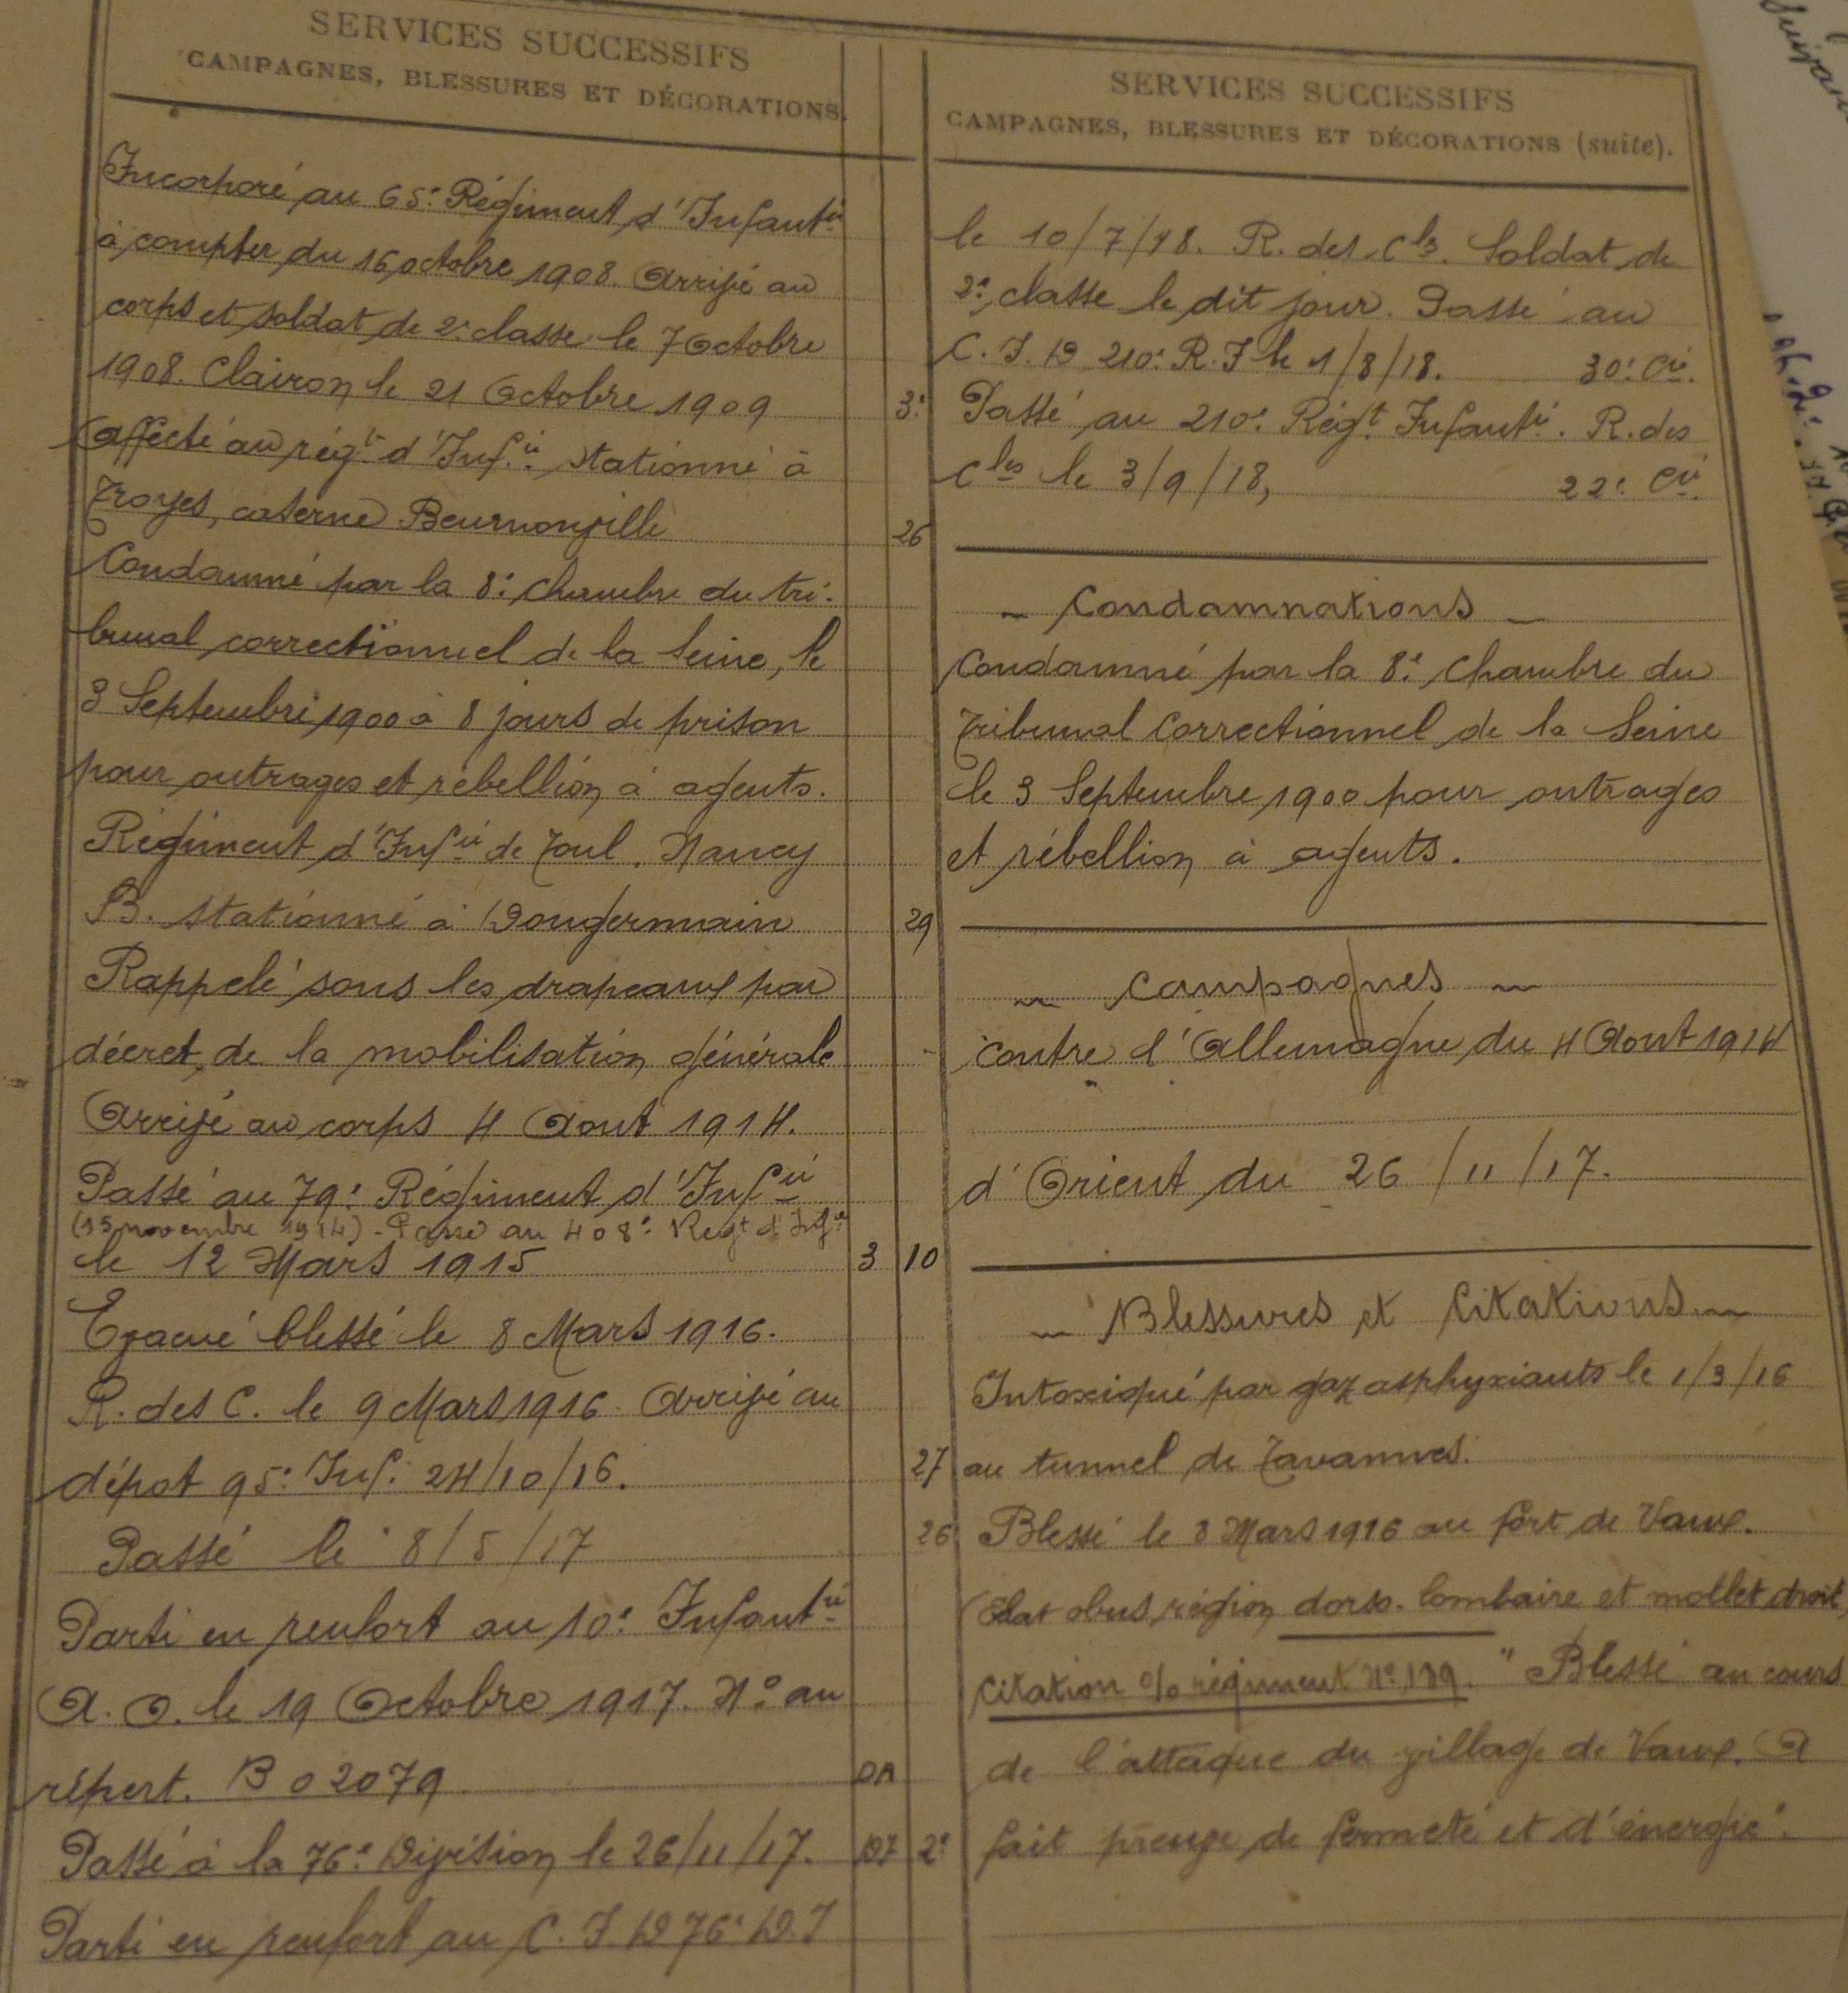 SERVICES SUCCESSIFS
CAMPAGNES, BLESSURES ET DÉCORATIONS.
Incorporé au 65e Régiment d'Infantie
à compter du 16 octobre 1908. Arrivé au
corps et soldat de 2e classe le 7 Octobre
1908. Clairon le 21 Octobre 1909
Affecté au régt d'Infie stationné à
Troyes, caserne Beurnonville
Condamné par la 8e Chambre du tri-
bunal correctionnel de la Seine, le
3 Septembre 1900 à 8 jours de prison
pour outrages et rébellion à agents.
Régiment d'Infie de Toul. Nancy
B. stationné à Dongermain
Rappelé sous les drapeaux par
décret de la mobilisation générale
Arrivé au corps 4 Aout 1914.
Passé au 79e Régiment d'Infie
(15 novembre 1914) - Passé au 408e Regt d'Infie
le 12 Mars 1915
Evacué blessé le 8 Mars 1916.
R. des C. le 9 Mars 1916. Arrivé au
dépot 95e Inf. 24/10/16.
Passé le 8/5/17
Parti en renfort au 10e Infantie
A. O. le 19 Octobre 1917. No au
répert. B 02079
Passé à la 76e Division le 26/11/17.
Parti en renfort au C. I. D 76e D. I
3
26
29
3 10
27
26
DA
D7 2e
SERVICES SUCCESSIFS
CAMPAGNES, BLESSURES ET DÉCORATIONS (suite).
le 10/7/18. R. des Cls. Soldat de
2e classe le dit jour. Passé au
C. I. D 210e R. I le 1/8/18. 30e Cie.
Passé au 210e Régt Infantie. R. des
Cles le 3/9/18, 22e Cie.
Condamnations
Condamné par la 8e Chambre du
Tribunal Correctionnel de la Seine
le 3 Septembre 1900 pour outrages
et rébellion à agents.
Campagnes
Contre l'Allemagne du 4 Aout 1914
d'Orient du 26/11/17.
Blessures et Citations
Intoxiqué par gaz asphyxiants le 1/3/16
au tunnel de Tavannes.
Blessé le 8 Mars 1916 au fort de Vaux.
Eclat obus région dorso-lombaire et mollet droit
Citation % régiment No 139. "Blessé au cours
de l'attaque du village de Vaux. A
fait preuve de fermeté et d'énergie".